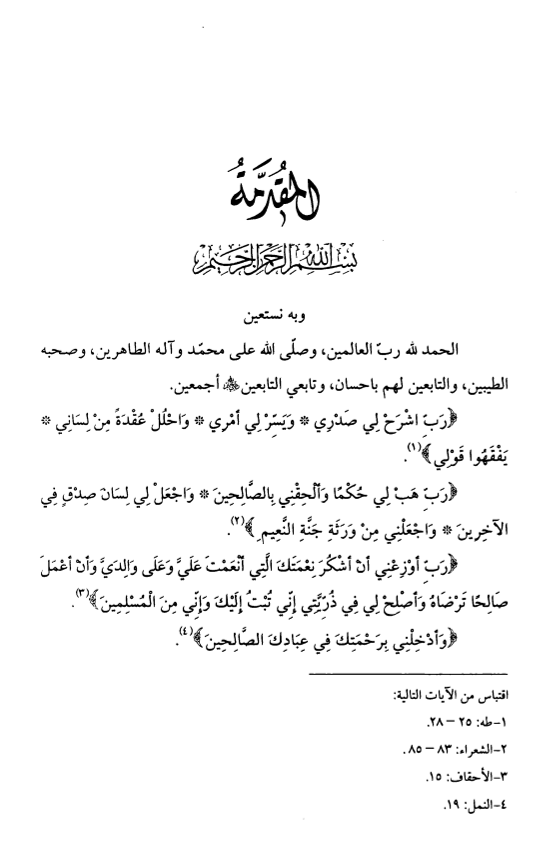 المُقَدِّمَةُ
بِسْمِ اللهِ الرَّحْمٰنِ الرَّحِيمِ
وبه نستعين
الحمد لله ربّ العالمين، وصلّى الله على محمّد وآله الطاهرين، وصحبه
الطيبين، والتابعين لهم باحسان، وتابعي التابعين أجمعين.
﴿رَبِّ اشْرَحْ لِي صَدْرِي * وَيَسِّرْ لِي أَمْرِي * وَاحْلُلْ عُقْدَةً مِنْ لِسَانِي *
يَفْقَهُوا قَوْلِي﴾(١).
﴿رَبِّ هَبْ لِي حُكْمًا وَأَلْحِقْنِي بِالصَّالِحِينَ * وَاجْعَلْ لِي لِسَانَ صِدْقٍ فِي
الآخِرِينَ * وَاجْعَلْنِي مِنْ وَرَثَةِ جَنَّةِ النَّعِيمِ﴾(٢).
﴿رَبِّ أَوْزِعْنِي أَنْ أَشْكُرَ نِعْمَتَكَ الَّتِي أَنْعَمْتَ عَلَيَّ وَعَلَى وَالِدَيَّ وَأَنْ أَعْمَلَ
صَالِحًا تَرْضَاهُ وَأَصْلِحْ لِي فِي ذُرِّيَّتِي إِنِّي تُبْتُ إِلَيْكَ وَإِنِّي مِنَ الْمُسْلِمِينَ﴾(٣).
﴿وَأَدْخِلْنِي بِرَحْمَتِكَ فِي عِبَادِكَ الصَّالِحِينَ﴾(٤).
اقتباس من الآيات التالية:
١-طه: ٢٥ – ٢٨.
٢-الشعراء: ٨٣ – ٨٥.
٣-الأحقاف: ١٥.
٤-النمل: ١٩.